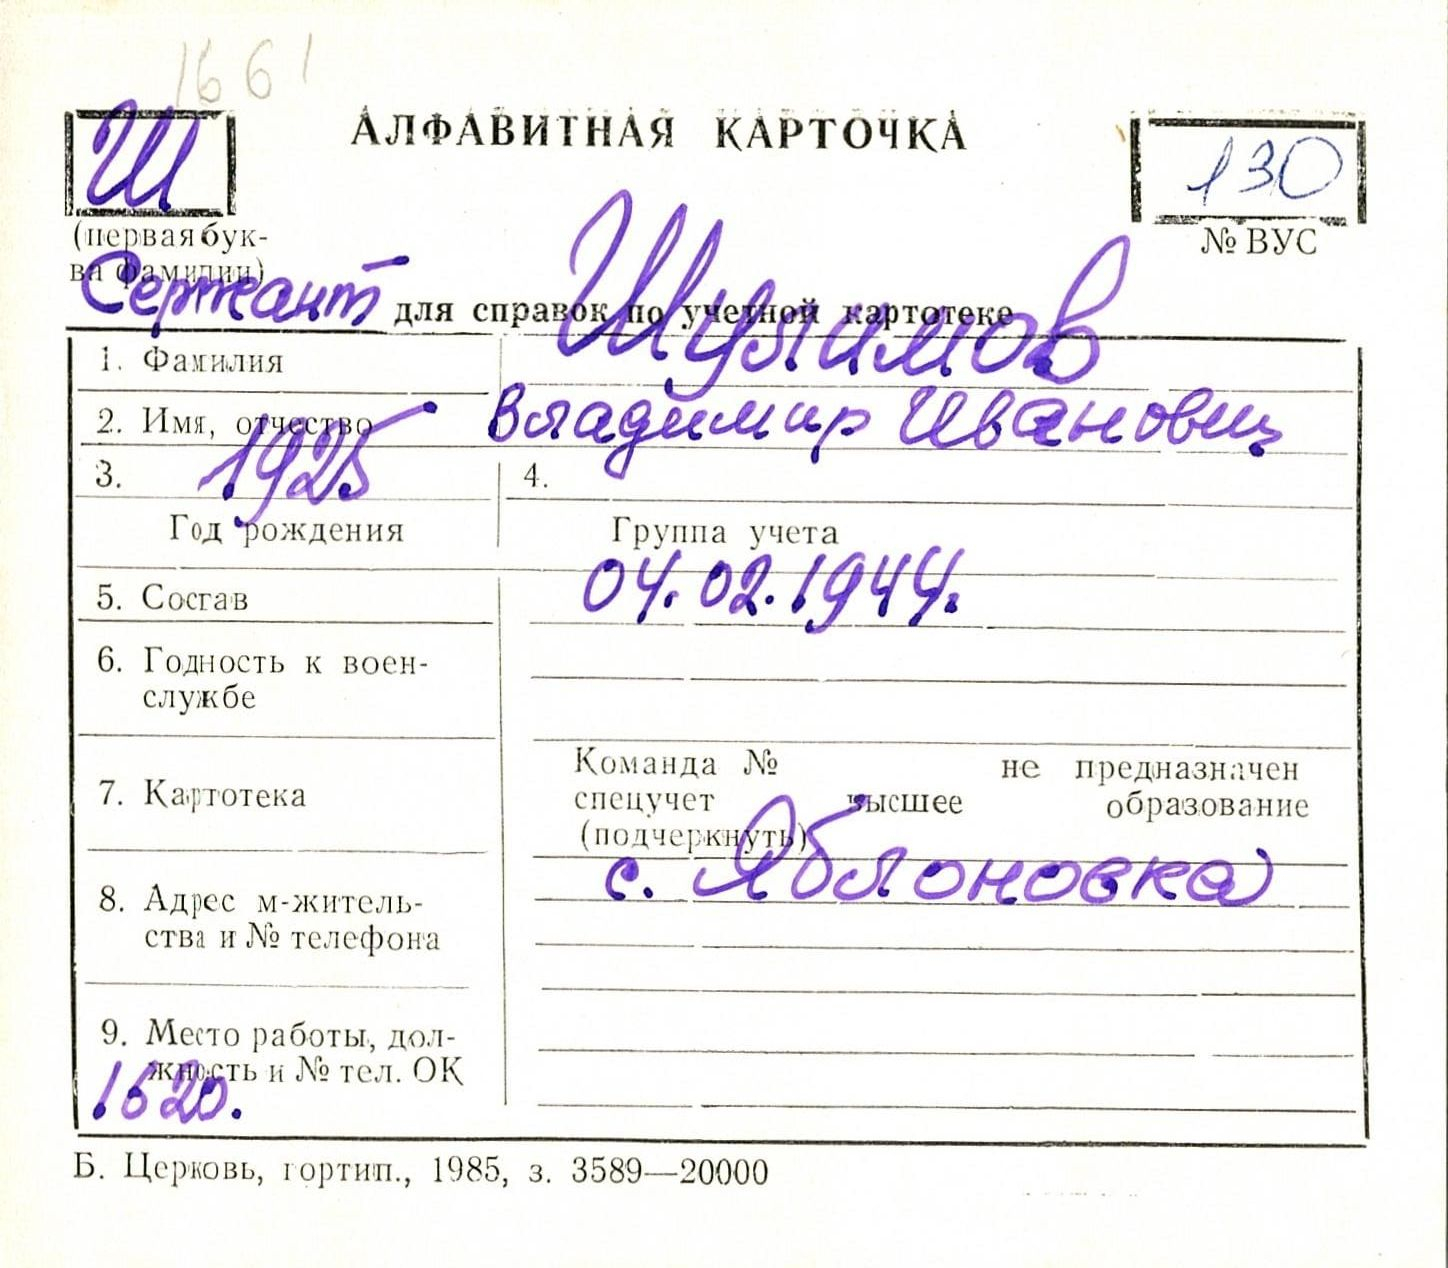 1661
Ш
АЛФАВИТНАЯ КАРТОЧКА
130
(первая бук-
ва фамилии)
№ ВУС
Сержант для справок по учетной картотеке
1. Фамилия Шулимов
2. Имя, отчество Владимир Иванович
3. 1925 4.
Год рождения Группа учета
5. Состав 04.02.1944.
6. Годность к воен-
службе
7. Картотека
Команда № не предназначен
спецучет высшее образование
(подчеркнуть)
8. Адрес м-житель-
ства и № телефона
с. Яблоновка
9. Место работы, дол-
жность и № тел. ОК
1620.
Б. Церковь, гортип., 1985, з. 3589—20000